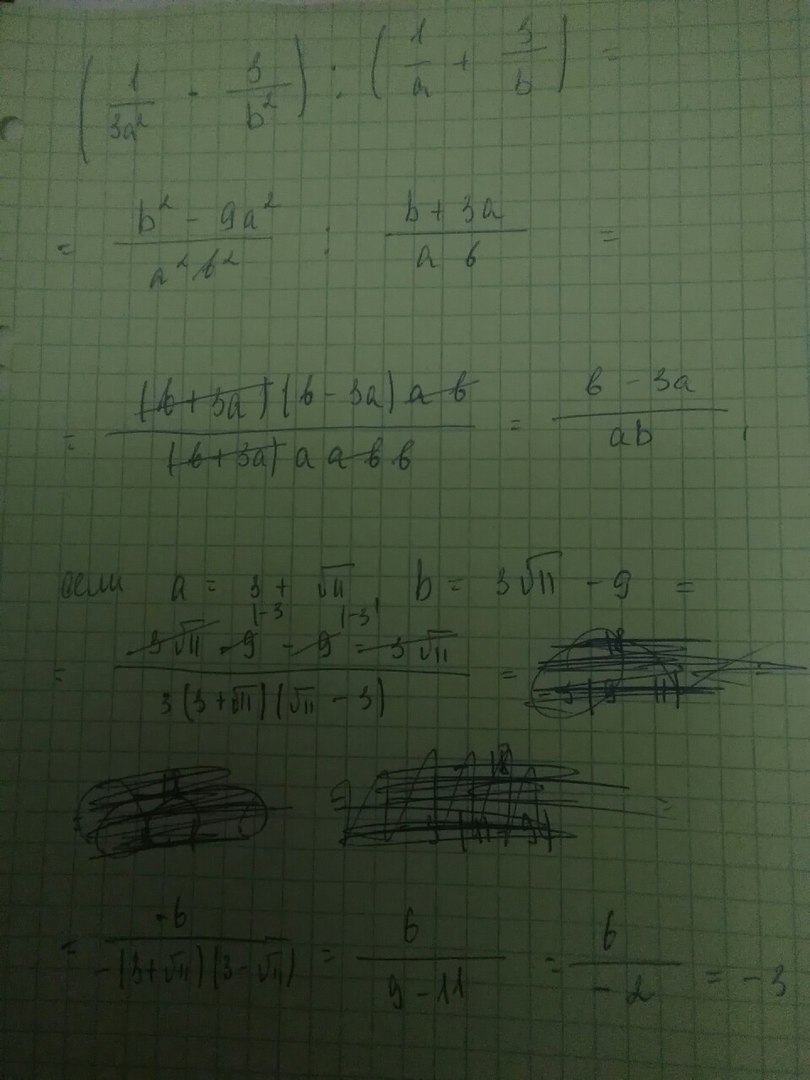 (1/3a² - 3/b²) : (1/a + 3/b) =
= b² - 9a² / a²b² : b + 3a / ab =
= (b+3a)(b-3a)ab / (b+3a)aabb = b - 3a / ab ,
если a = 3 + √11, b = 3√11 - 9 =
|-3 |-3'
= 3√11 - 9 - 9 - 3√11 / 3(3+√11)(√11 - 3) =
= -6 / -(3+√11)(3-√11) = 6 / 9-11 = 6 / -2 = -3